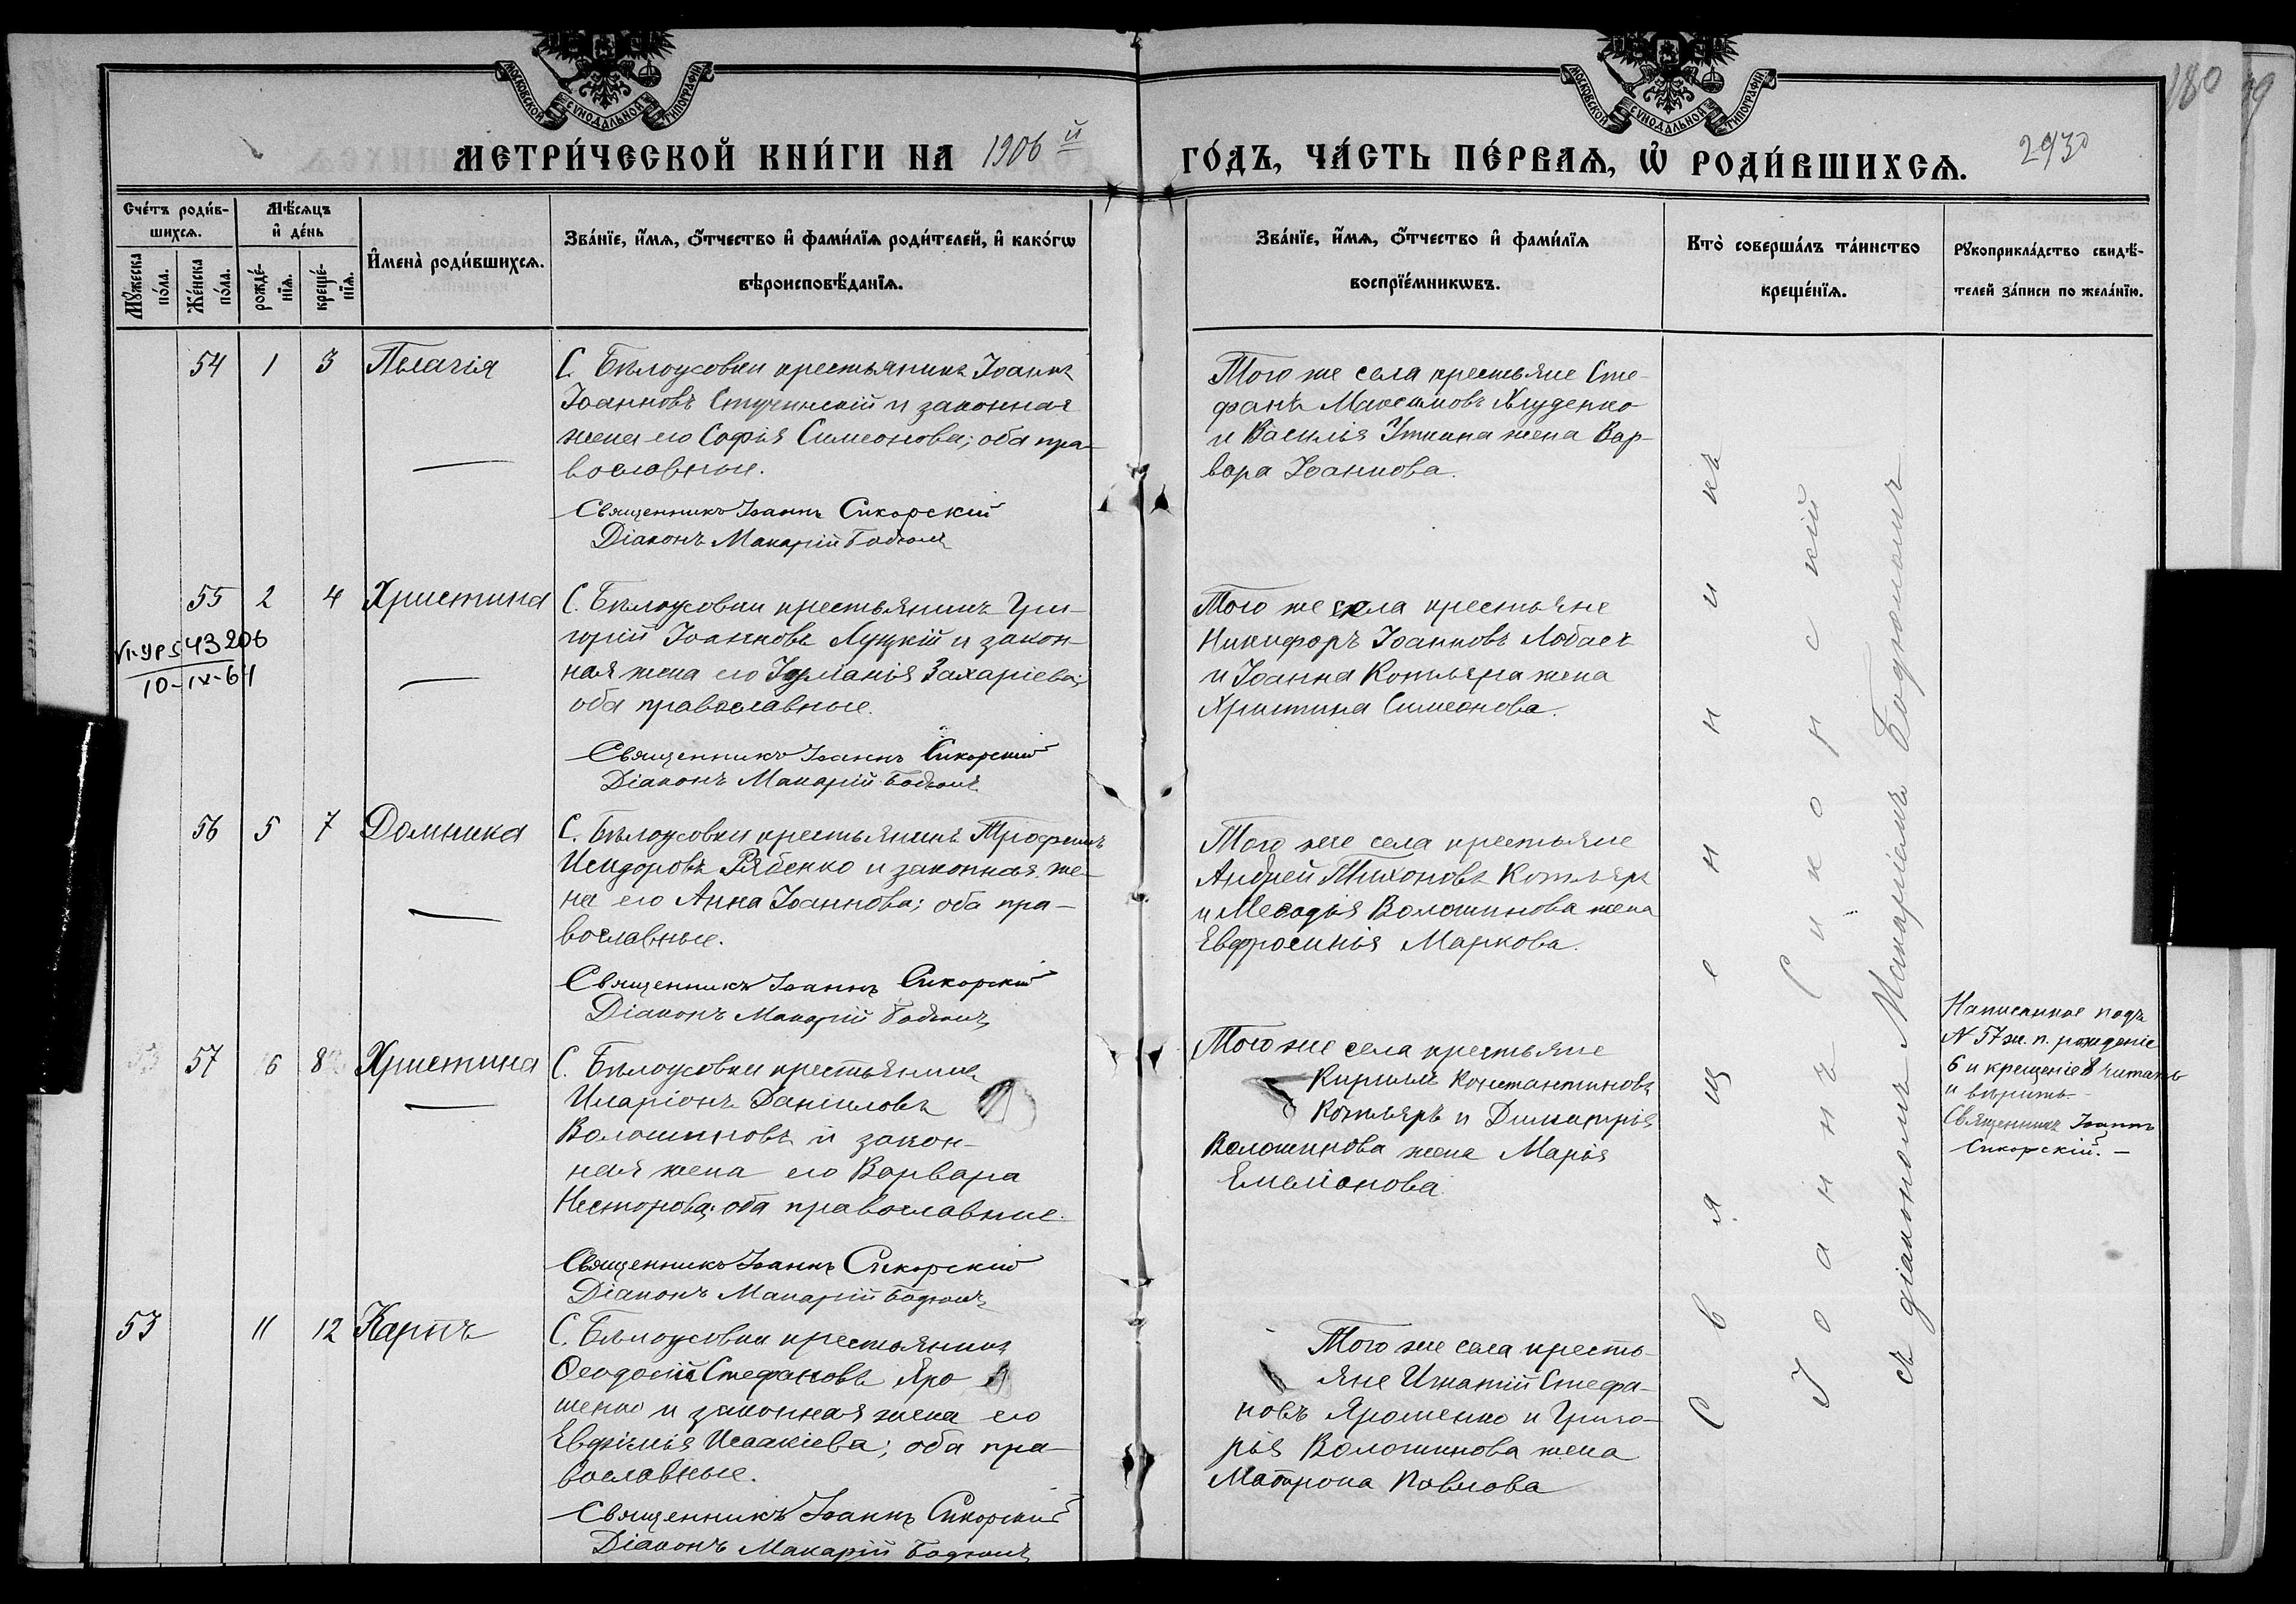 МОСКОВСКОЙ СѴНОДАЛЬНОЙ ТИПОГРАФІИ
МОСКОВСКОЙ СѴНОДАЛЬНОЙ ТИПОГРАФІИ
180
2930
МЕТРИ́ЧЕСКОЙ КНИ́ГИ НА 1906 й ГО́ДЪ, ЧА́СТЬ ПЕ́РВАѦ, Ѡ҆ РОДИ́ВШИХСѦ.
Сче́тъ роди́в-
шихсѧ.
Мꙋ́жеска
по́ла.
Же́нска
по́ла.
Мѣ́сѧцъ
и҆ де́нь
рожде́-
нїѧ.
креще́-
нїѧ.
И҆мена̀ роди́вшихсѧ.
Зва́нїе, и҆́мѧ, ѻ҆́тчество и҆ фами́лїѧ роди́телей, и҆ како́гѡ
вѣроисповѣ́данїѧ.
Зва́нїе, и҆́мѧ, ѻ҆́тчество и҆ фами́лїѧ
воспрїе́мникѡвъ.
Кто̀ соверша́лъ та́инство
креще́нїѧ.
Рꙋкоприкла́дство свидѣ́-
телей за́писи по жела́нїю.
54 1 3 Пелагія
С. Бѣлоусовки крестьянинъ Іоаннъ
Іоанновъ Стучинскій и законная
жена его Софія Симеонова; оба пра-
вославные.
Священникъ Іоаннъ Сикорскій
Діаконъ Макарій
Того же села крестьяне Сте-
фанъ Максимовъ
и Василія жена Вар-
вара Іоаннова.
55 2 4 Христина
43206
10-IX-61
С. Бѣлоусовки крестьянинъ Гри-
горій Іоанновъ Луцкій и закон-
ная жена его Іуліанія Захаріева;
оба православные.
Священникъ Іоаннъ Сикорскій
Діаконъ Макарій
Того же села крестьяне
Никифоръ Іоанновъ Лобасъ
и Іоанна Котляра жена
Христина Симеонова.
56 5 7 Домника
С. Бѣлоусовки крестьянинъ Трофимъ
Исидоровъ Рябенко и законная же-
на его Анна Іоаннова; оба пра-
вославные.
Священникъ Іоаннъ Сикорскій
Діаконъ Макарій
Того же села крестьяне
Андрей Тихоновъ Котляръ
и Меѳодія Волошинова жена
Евфросинія Маркова.
57 6 8 Христина
С. Бѣлоусовки крестьянинъ
Иларіонъ Даніиловъ
Волошиновъ и закон-
ная жена его Варвара
Несторова; оба православные.
Священникъ Іоаннъ Сикорскій
Діаконъ Макарій
Того же села крестьяне
Кириллъ Константиновъ
Котляръ и Димитрія
Волошинова жена Марія
Емеліанова.
Написанное подъ
N 57 ж. п. рожденіе
6 и крещеніе 8 читать
и вѣрить
Священникъ Іоаннъ
Сикорскій. —
53 11 12 Карпъ
С. Бѣлоусовки крестьянинъ
Ѳеодосій Стефановъ Яро
шенко и законная жена его
Евфимія Исаакіева; оба пра-
вославные.
Священникъ Іоаннъ Сикорскій
Діаконъ Макарій
Того же села кресть-
яне Игнатій Стефа-
новъ Ярошенко и Григо-
рія Волошинова жена
Матрона Павлова
Священникъ
Іоаннъ Сикорскій
съ діакономъ Макаріемъ